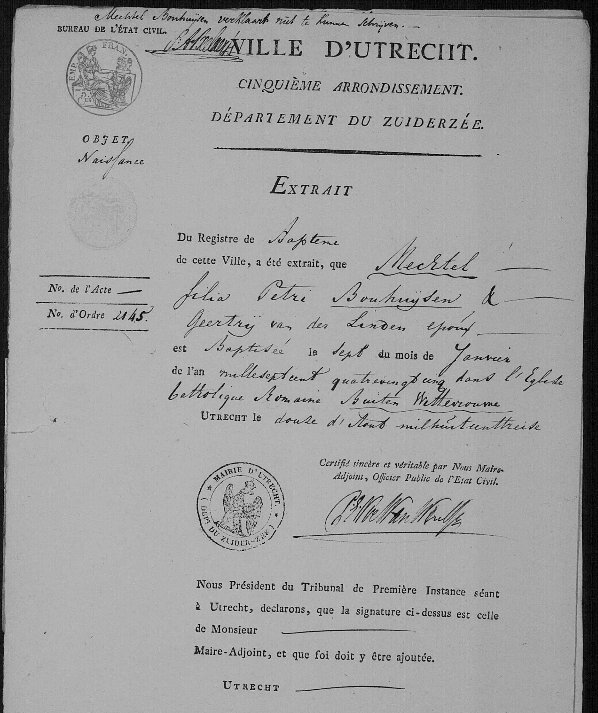 Mechtel Bouhuijsen verklaart niet te kunnen schrijven.
BUREAU DE L'ÉTAT CIVIL.
VILLE D'UTRECHT.
CINQUIÈME ARRONDISSEMENT.
DÉPARTEMENT DU ZUIDERZÉE.
OBJET
Naissance
EXTRAIT
Du Registre de Bapteme
de cette Ville, a été extrait, que Mechtel
No. de l'Acte —
filia Petri Bouhuijsen &
No. d'Ordre 2145.
Geertrij van der Linden epoux
est Baptisée le sept du mois de Janvier
de l'an millesept cent quatrevingt dans l'Eglise
Catholique Romaine Buiten Wittevrouwe
UTRECHT le douze d'Aout milhuitcenttreise
Certifié sincère et véritable par Nous Maire-
Adjoint, Officier Public de l'Etat Civil.
MAIRIE D'UTRECHT.
(DEP. DU ZUIDER-ZÉE)
Nous Président du Tribunal de Première Instance séant
à Utrecht, declarons, que la signature ci-dessus est celle
de Monsieur
Maire-Adjoint, et que foi doit y être ajoutée.
UTRECHT